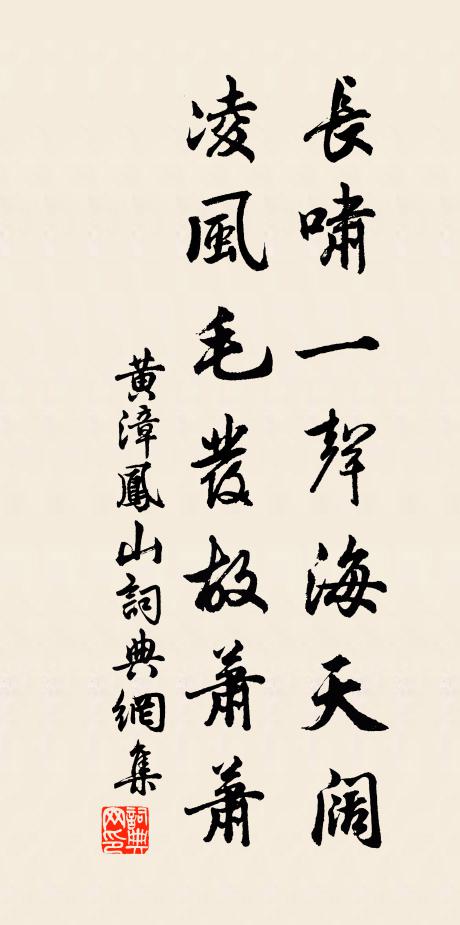 長嘯一聲海天闊
凌風毛發故蕭蕭
黃漳鳳山詞典網集
詞典网印